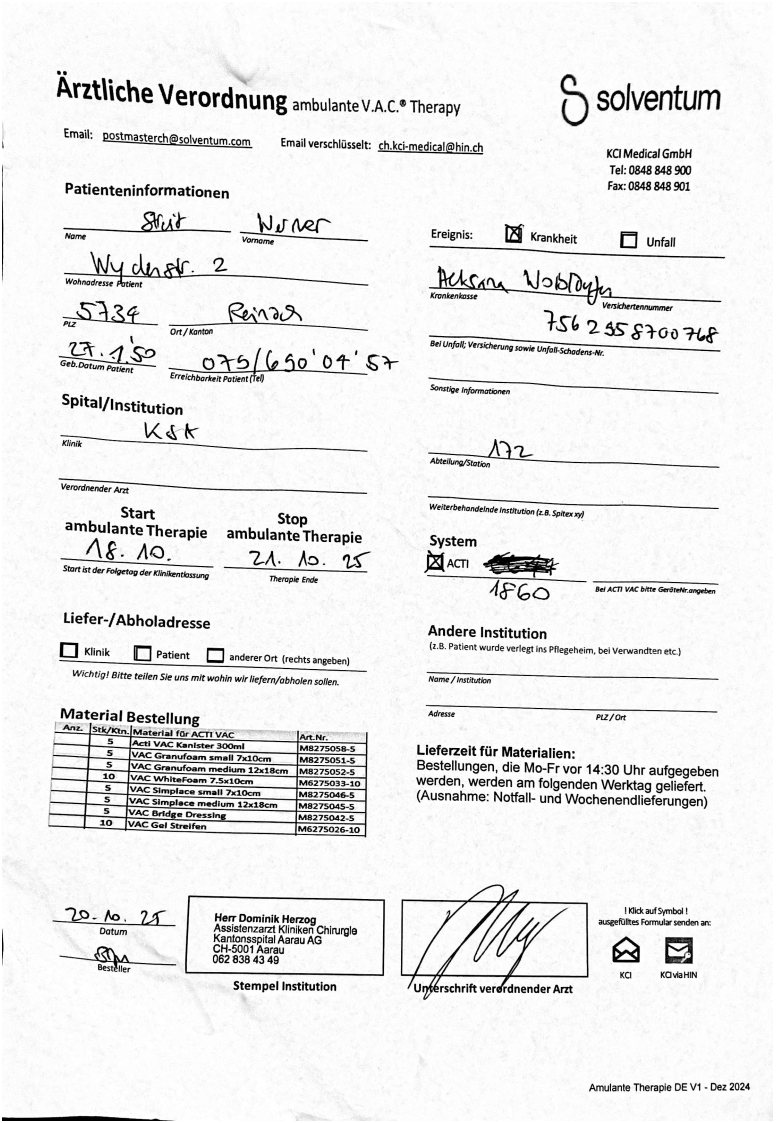 Ärztliche Verordnung ambulante V.A.C.® Therapy
solventum
Email: postmasterch@solventum.com Email verschlüsselt: ch.kci-medical@hin.ch
KCI Medical GmbH
Tel: 0848 848 900
Fax: 0848 848 901
Patienteninformationen
Streit Werner
Name Vorname
Wydenstr. 2
Wohnadresse Patient
5734 Reinach
PLZ Ort / Kanton
27.1.'50 079/690'04'57
Geb.Datum Patient Erreichbarkeit Patient (Tel)
Ereignis: Krankheit Unfall
Krankenkasse Versichertennummer
756 2958700768
Bei Unfall; Versicherung sowie Unfall-Schadens-Nr.
Sonstige Informationen
Spital/Institution
KSA
Klinik
Verordnender Arzt
172
Abteilung/Station
Weiterbehandelnde Institution (z.B. Spitex xy)
Start
ambulante Therapie
18. 10.
Start ist der Folgetag der Klinikentlassung
Stop
ambulante Therapie
21. 10. 25
Therapie Ende
System
ACTI
1860
Bei ACTI VAC bitte GeräteNr.angeben
Liefer-/Abholadresse
Klinik Patient anderer Ort (rechts angeben)
Wichtig! Bitte teilen Sie uns mit wohin wir liefern/abholen sollen.
Andere Institution
(z.B. Patient wurde verlegt ins Pflegeheim, bei Verwandten etc.)
Name / Institution
Adresse PLZ / Ort
Material Bestellung
Anz. Stk/Ktn. Material für ACTI VAC Art.Nr.
5 Acti VAC Kanister 300ml M8275058-5
5 VAC Granufoam small 7x10cm M8275051-5
5 VAC Granufoam medium 12x18cm M8275052-5
10 VAC WhiteFoam 7.5x10cm M6275033-10
5 VAC Simplace small 7x10cm M8275046-5
5 VAC Simplace medium 12x18cm M8275045-5
5 VAC Bridge Dressing M8275042-5
10 VAC Gel Streifen M6275026-10
Lieferzeit für Materialien:
Bestellungen, die Mo-Fr vor 14:30 Uhr aufgegeben
werden, werden am folgenden Werktag geliefert.
(Ausnahme: Notfall- und Wochenendlieferungen)
20. 10. 25
Datum
Besteller
Herr Dominik Herzog
Assistenzarzt Kliniken Chirurgie
Kantonsspital Aarau AG
CH-5001 Aarau
062 838 43 49
Stempel Institution
Unterschrift verordnender Arzt
! Klick auf Symbol !
ausgefülltes Formular senden an:
KCI KCI via HIN
Amulante Therapie DE V1 - Dez 2024